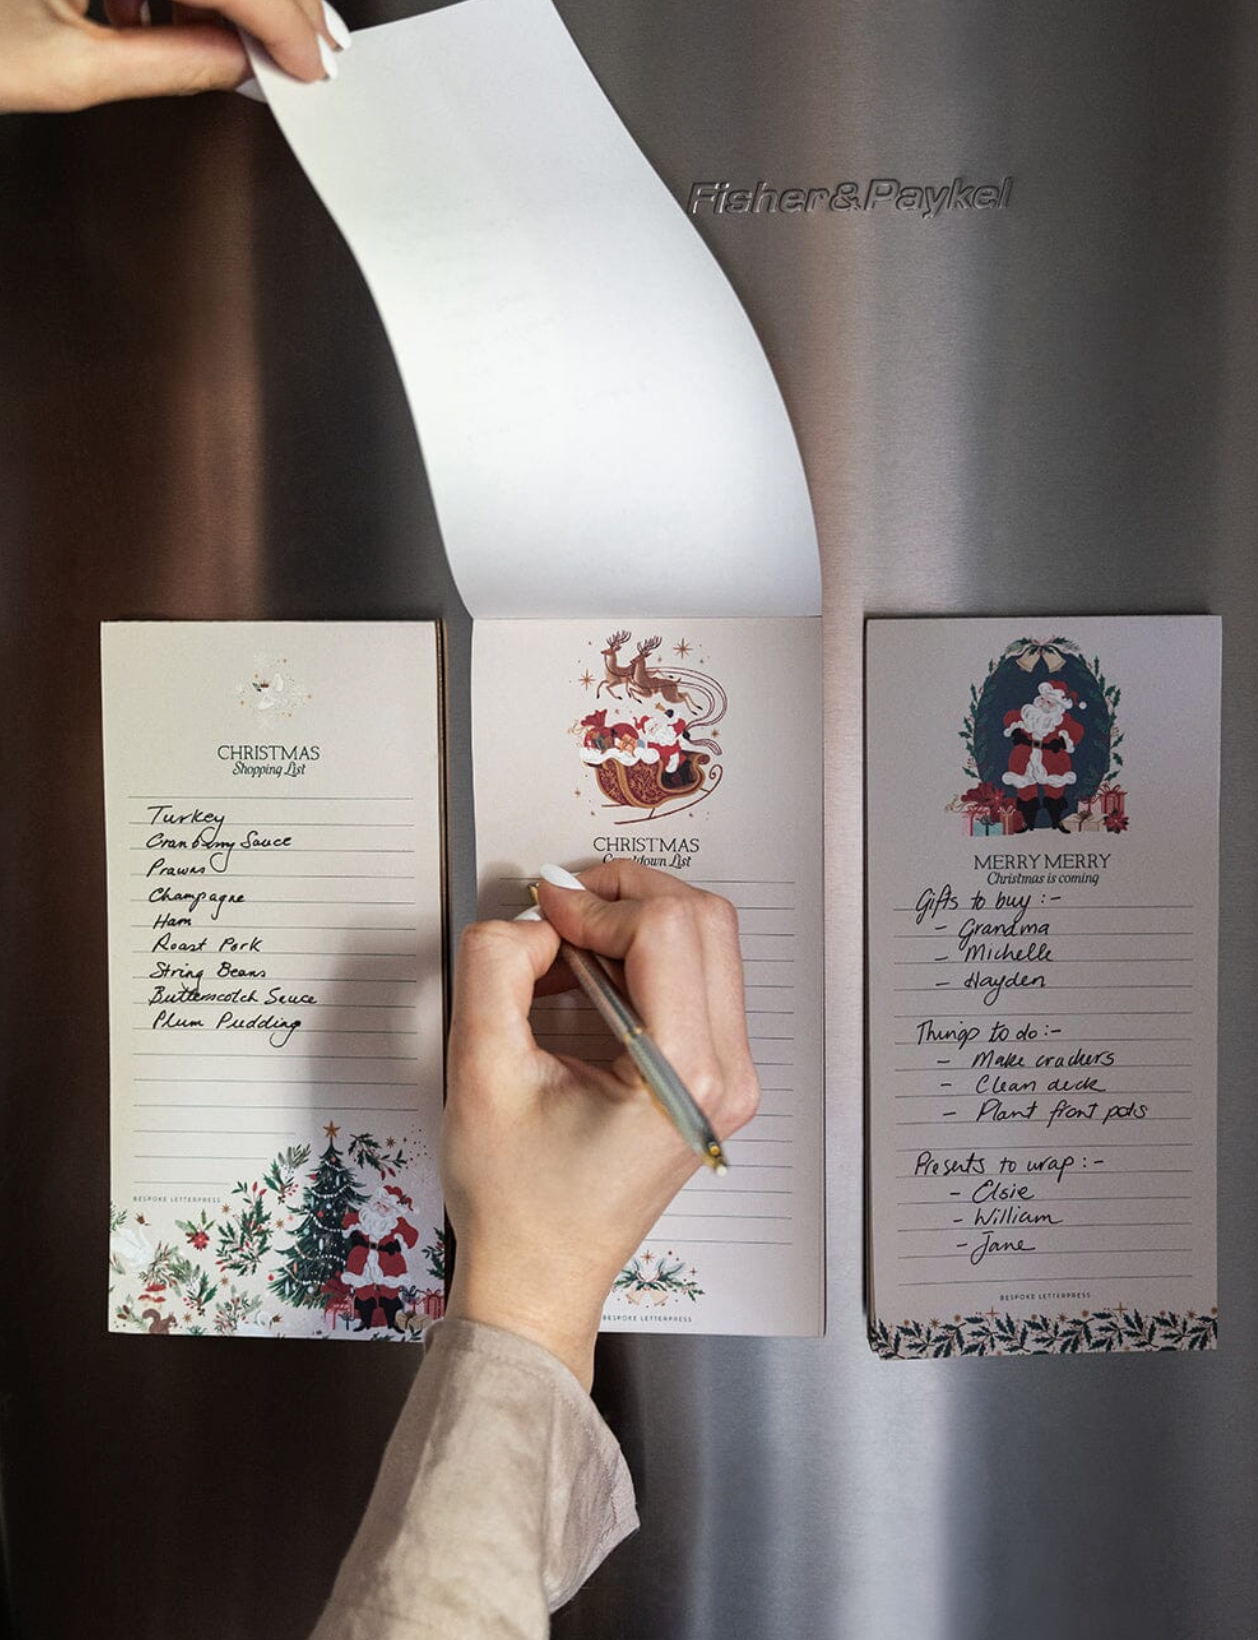 Fisher&Paykel
CHRISTMAS
Shopping List
Turkey
Cranberry Sauce
Prawns
Champagne
Ham
Roast Pork
String Beans
Butterscotch Sauce
Plum Pudding
BESPOKE LETTERPRESS
CHRISTMAS
Countdown List
BESPOKE LETTERPRESS
MERRY MERRY
Christmas is coming
Gifts to buy :-
- Grandma
- Michelle
- Hayden
Things to do :-
- Make crackers
- Clean deck
- Plant front pots
Presents to wrap :-
- Elsie
- William
- Jane
BESPOKE LETTERPRESS